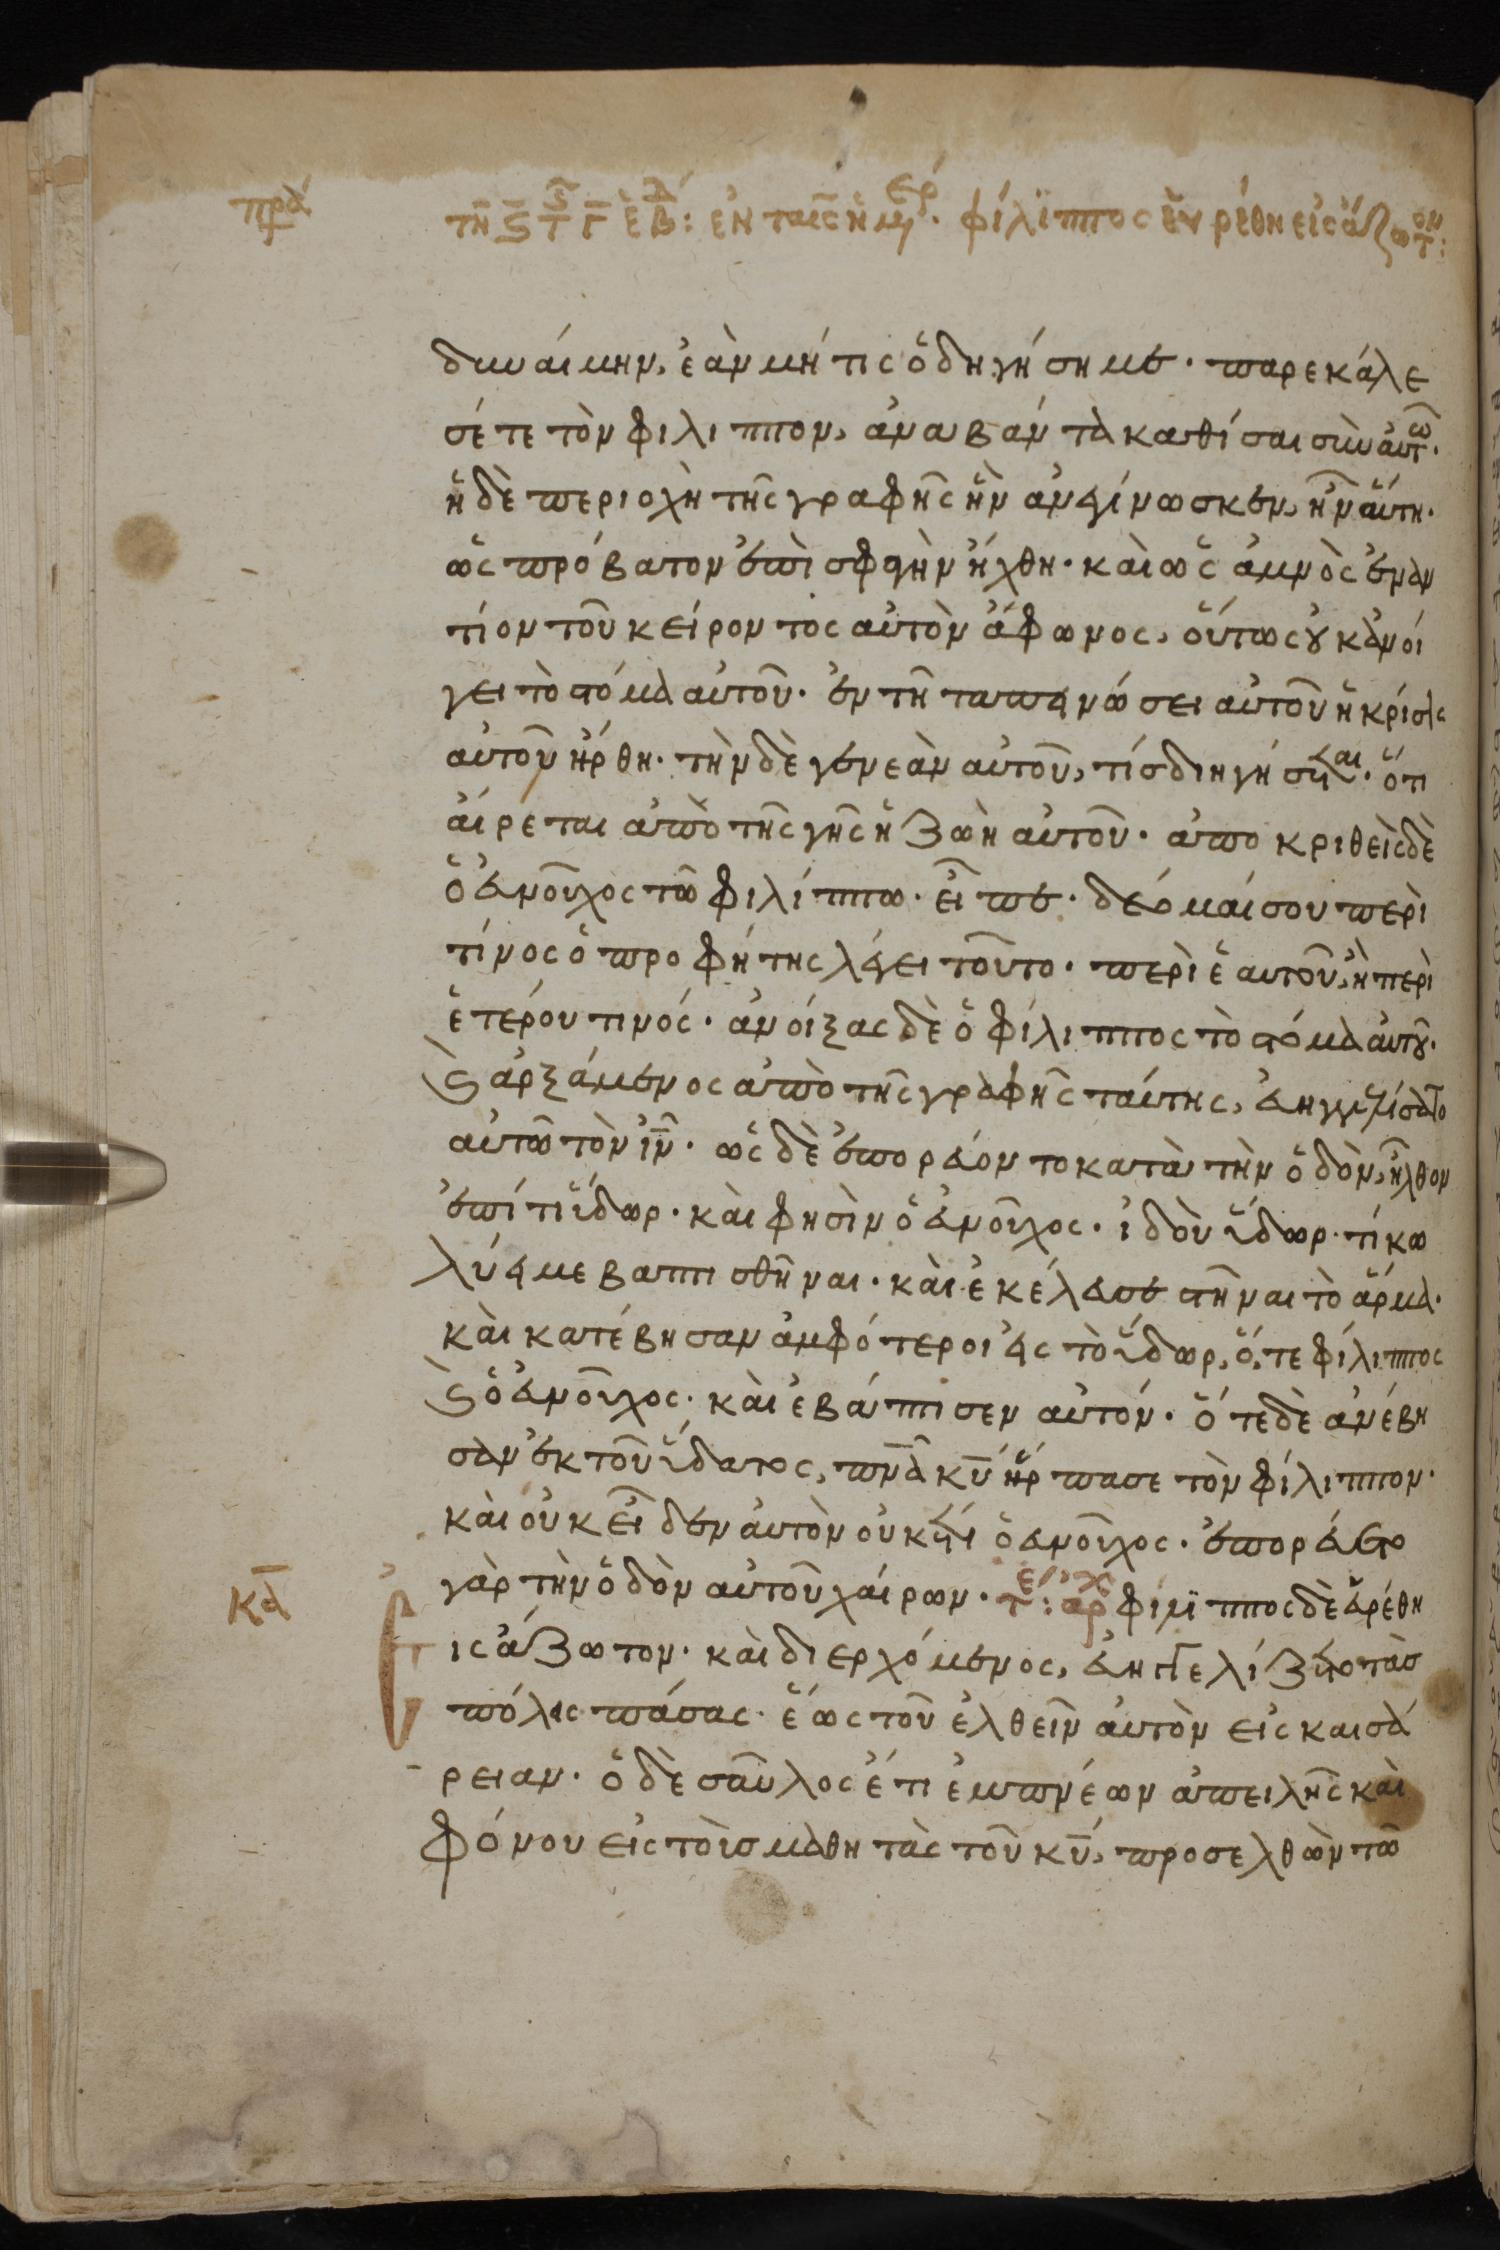 πρά
τῆ ϛ τ̄ς̄ γ̄ ἑβδ: ἐν ταῖς ἡμερ. φίλϊππος ἑυρέθη εἰς ἄζωτον:
δυναίμην, ἐὰν μή τις ὁδηγήση με. παρεκάλε
σέ τε τὸν φίλιππον, ἀναβάντα καθίσαι σὺν αὐτῶ.
ἡ δὲ περιοχὴ τῆς γραφῆς ἣν ἀνεγίνωσκεν, ἦν αὕτη.
ὡς πρόβατον ἐπὶ σφαγὴν ἤχθη. καὶ ὡς ἀμνὸς ἐναν
τίον τοῦ κείροντος αὐτὸν ἄφωνος, οὕτως οὐκ ἀνοί
γει τὸ στόμα αὐτοῦ. ἐν τῆ ταπεινώσει αὐτοῦ ἡ κρίσις
αὐτοῦ ἤρθη. τὴν δὲ γενεὰν αὐτοῦ, τίς διηγήσεται. ὅτι
αἴρεται ἀπὸ τῆς γῆς ἡ ζωὴ αὐτοῦ. ἀποκριθεὶς δὲ
ὁ εὐνοῦχος τῶ φιλίππω. εἶπε. δέομαί σου περὶ
τίνος ὁ προφήτης λέγει τοῦτο. περὶ ἑαυτοῦ, ἢ περὶ
ἑτέρου τινός. ἀνοίξας δὲ ὁ φίλιππος τὸ στόμα αὐτοῦ.
καὶ ἀρξάμενος ἀπὸ τῆς γραφῆς ταύτης, εὐηγγελίσατο
αὐτῶ τὸν ἰν̄. ὡς δὲ ἐπορεύοντο κατὰ τὴν ὁδὸν, ἦλθον
ἐπί τι ὕδωρ. καὶ φησὶν ὁ εὐνοῦχος. ἰδοὺ ὕδωρ. τί κω
λύει με βαπτισθῆναι. καὶ ἐκέλευσε στῆναι τὸ ἅρμα.
καὶ κατέβησαν ἀμφότεροι εἰς τὸ ὕδωρ, ὅ, τε φίλιππος
καὶ ὁ εὐνοῦχος. καὶ ἐβάπτισεν αὐτόν. ὅτε δὲ ἀνέβη
σαν ἐκ τοῦ ὕδατος, πν̄α κῡ ἥρπασε τὸν φίλιππον.
καὶ οὐκ εἶδεν αὐτὸν οὐκέτι ὁ εὐνοῦχος. ἐπορεύετο
γὰρ τὴν ὁδὸν αὐτοῦ χαίρων. τέ: ἀρχ φίλϊππος δὲ εὑρέθη
κᾱ
εἰς ἄζωτον. καὶ διερχόμενος, εὐηγγελίζετο τὰς
πόλεις πάσας. ἕως τοῦ ἐλθεῖν αὐτὸν εἰς καισά
ρειαν. ὁ δὲ σαῦλος ἔτι ἐμπνέων ἀπειλῆς καὶ
φόνου εἰς τοὺς μαθητὰς τοῦ κῡ, προσελθὼν τῶ